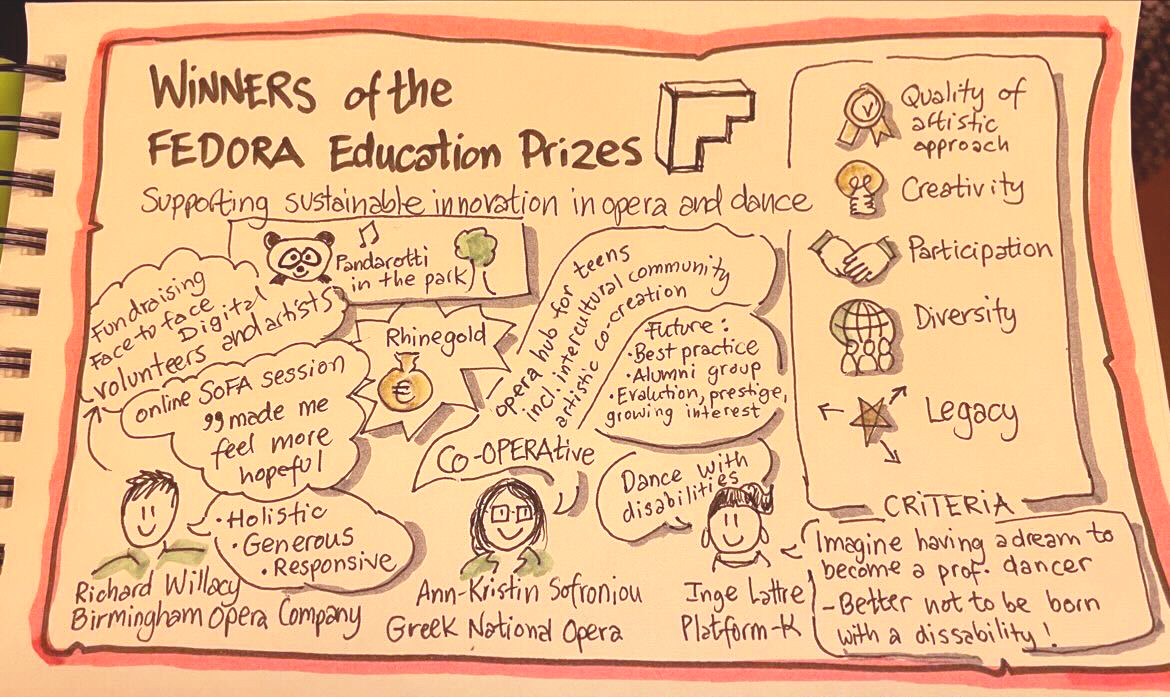 WINNERS of the
FEDORA Education Prizes
Supporting sustainable innovation in opera and dance
Pandarotti
in the park
Fundraising
Face to face
Digital
volunteers and artists
online SOFA session
"made me
feel more
hopeful
Rhinegold
€
• Holistic
• Generous
• Responsive
Richard Willacy
Birmingham Opera Company
opera hub for teens
incl. intercultural community
artistic co-creation
Future:
• Best practice
• Alumni group
• Evalution, prestige,
growing interest
CO-OPERAtive
Ann-Kristin Sofroniou
Greek National Opera
Dance with
disabilities
Inge Lattre
Platform-K
Imagine having a dream to
become a prof. dancer
- Better not to be born
with a dissability!
Quality of
artistic
approach
Creativity
Participation
Diversity
Legacy
CRITERIA